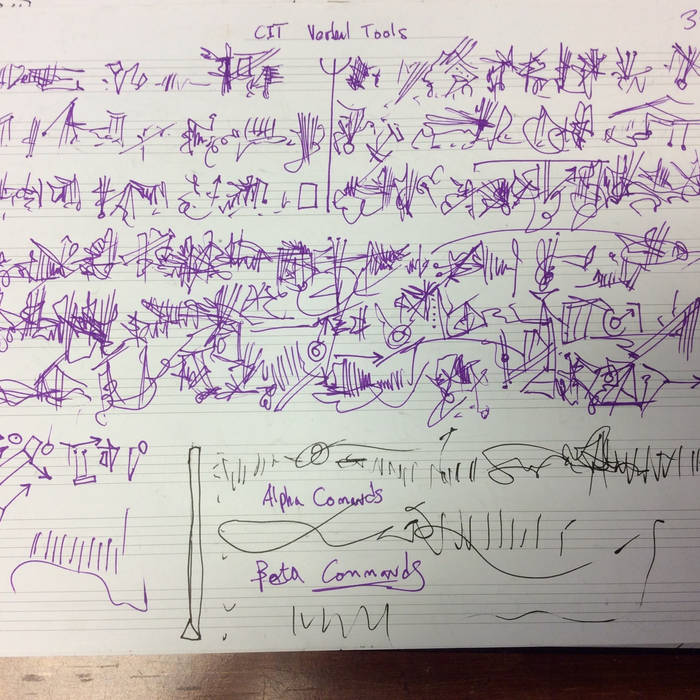 CIT Verbal Tools
3
Alpha Comands
Beta Commands